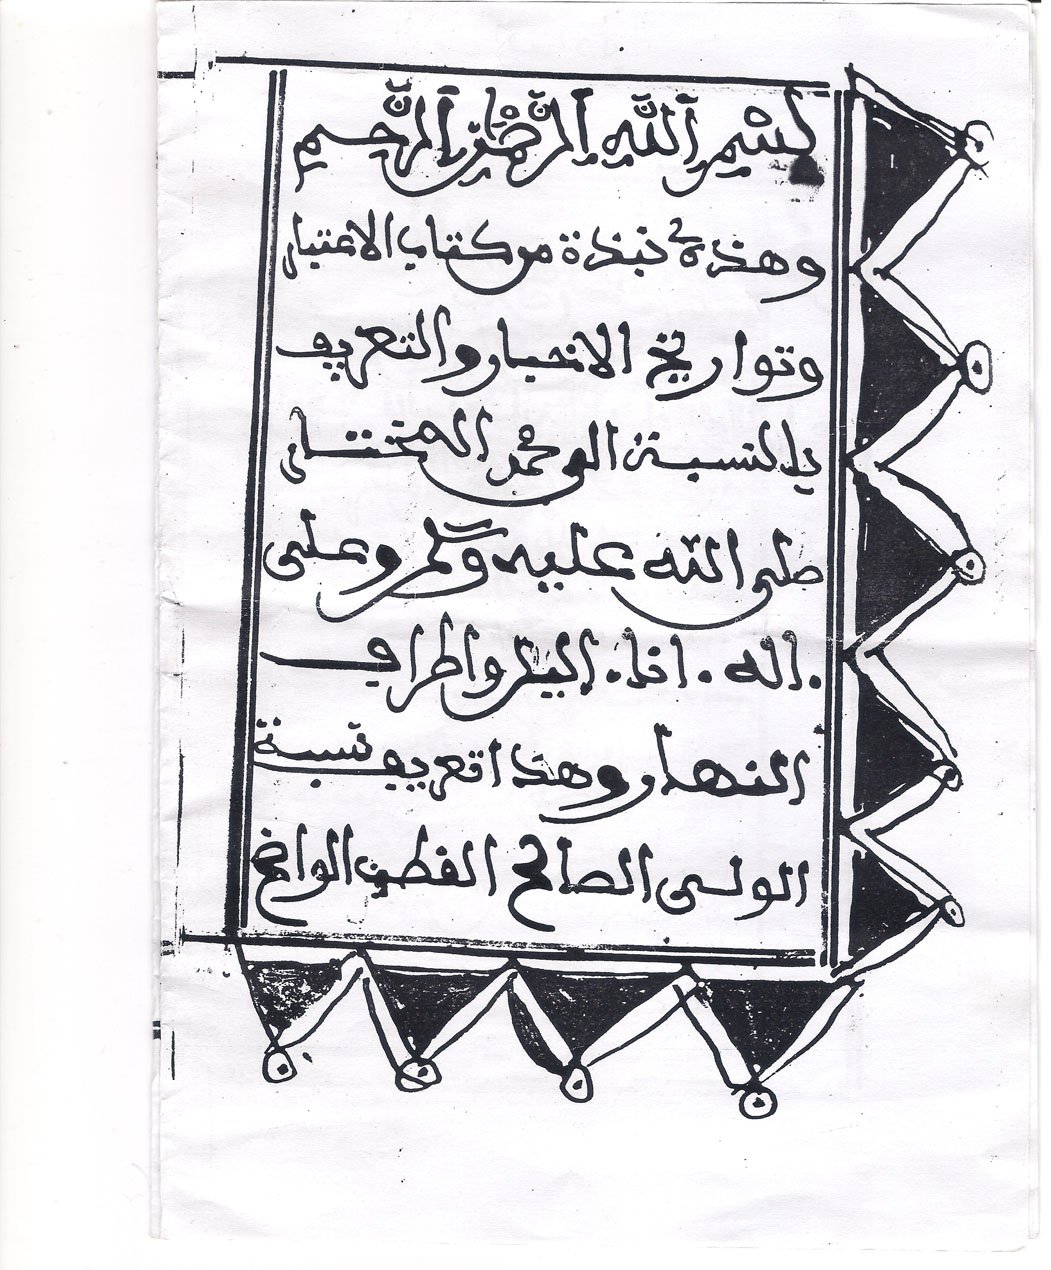 بسم الله الرحمن الرحيم
وهذه نبذة من كتاب الاعتبار
وتواريخ الاخبار والتعريف
بالنسبة الى محمد المختار
صلى الله عليه وسلم وعلى
اله . اناء . اليل واطراف
النهار وهذا تعريف نسبة
الولى الصالح القطب الواضح